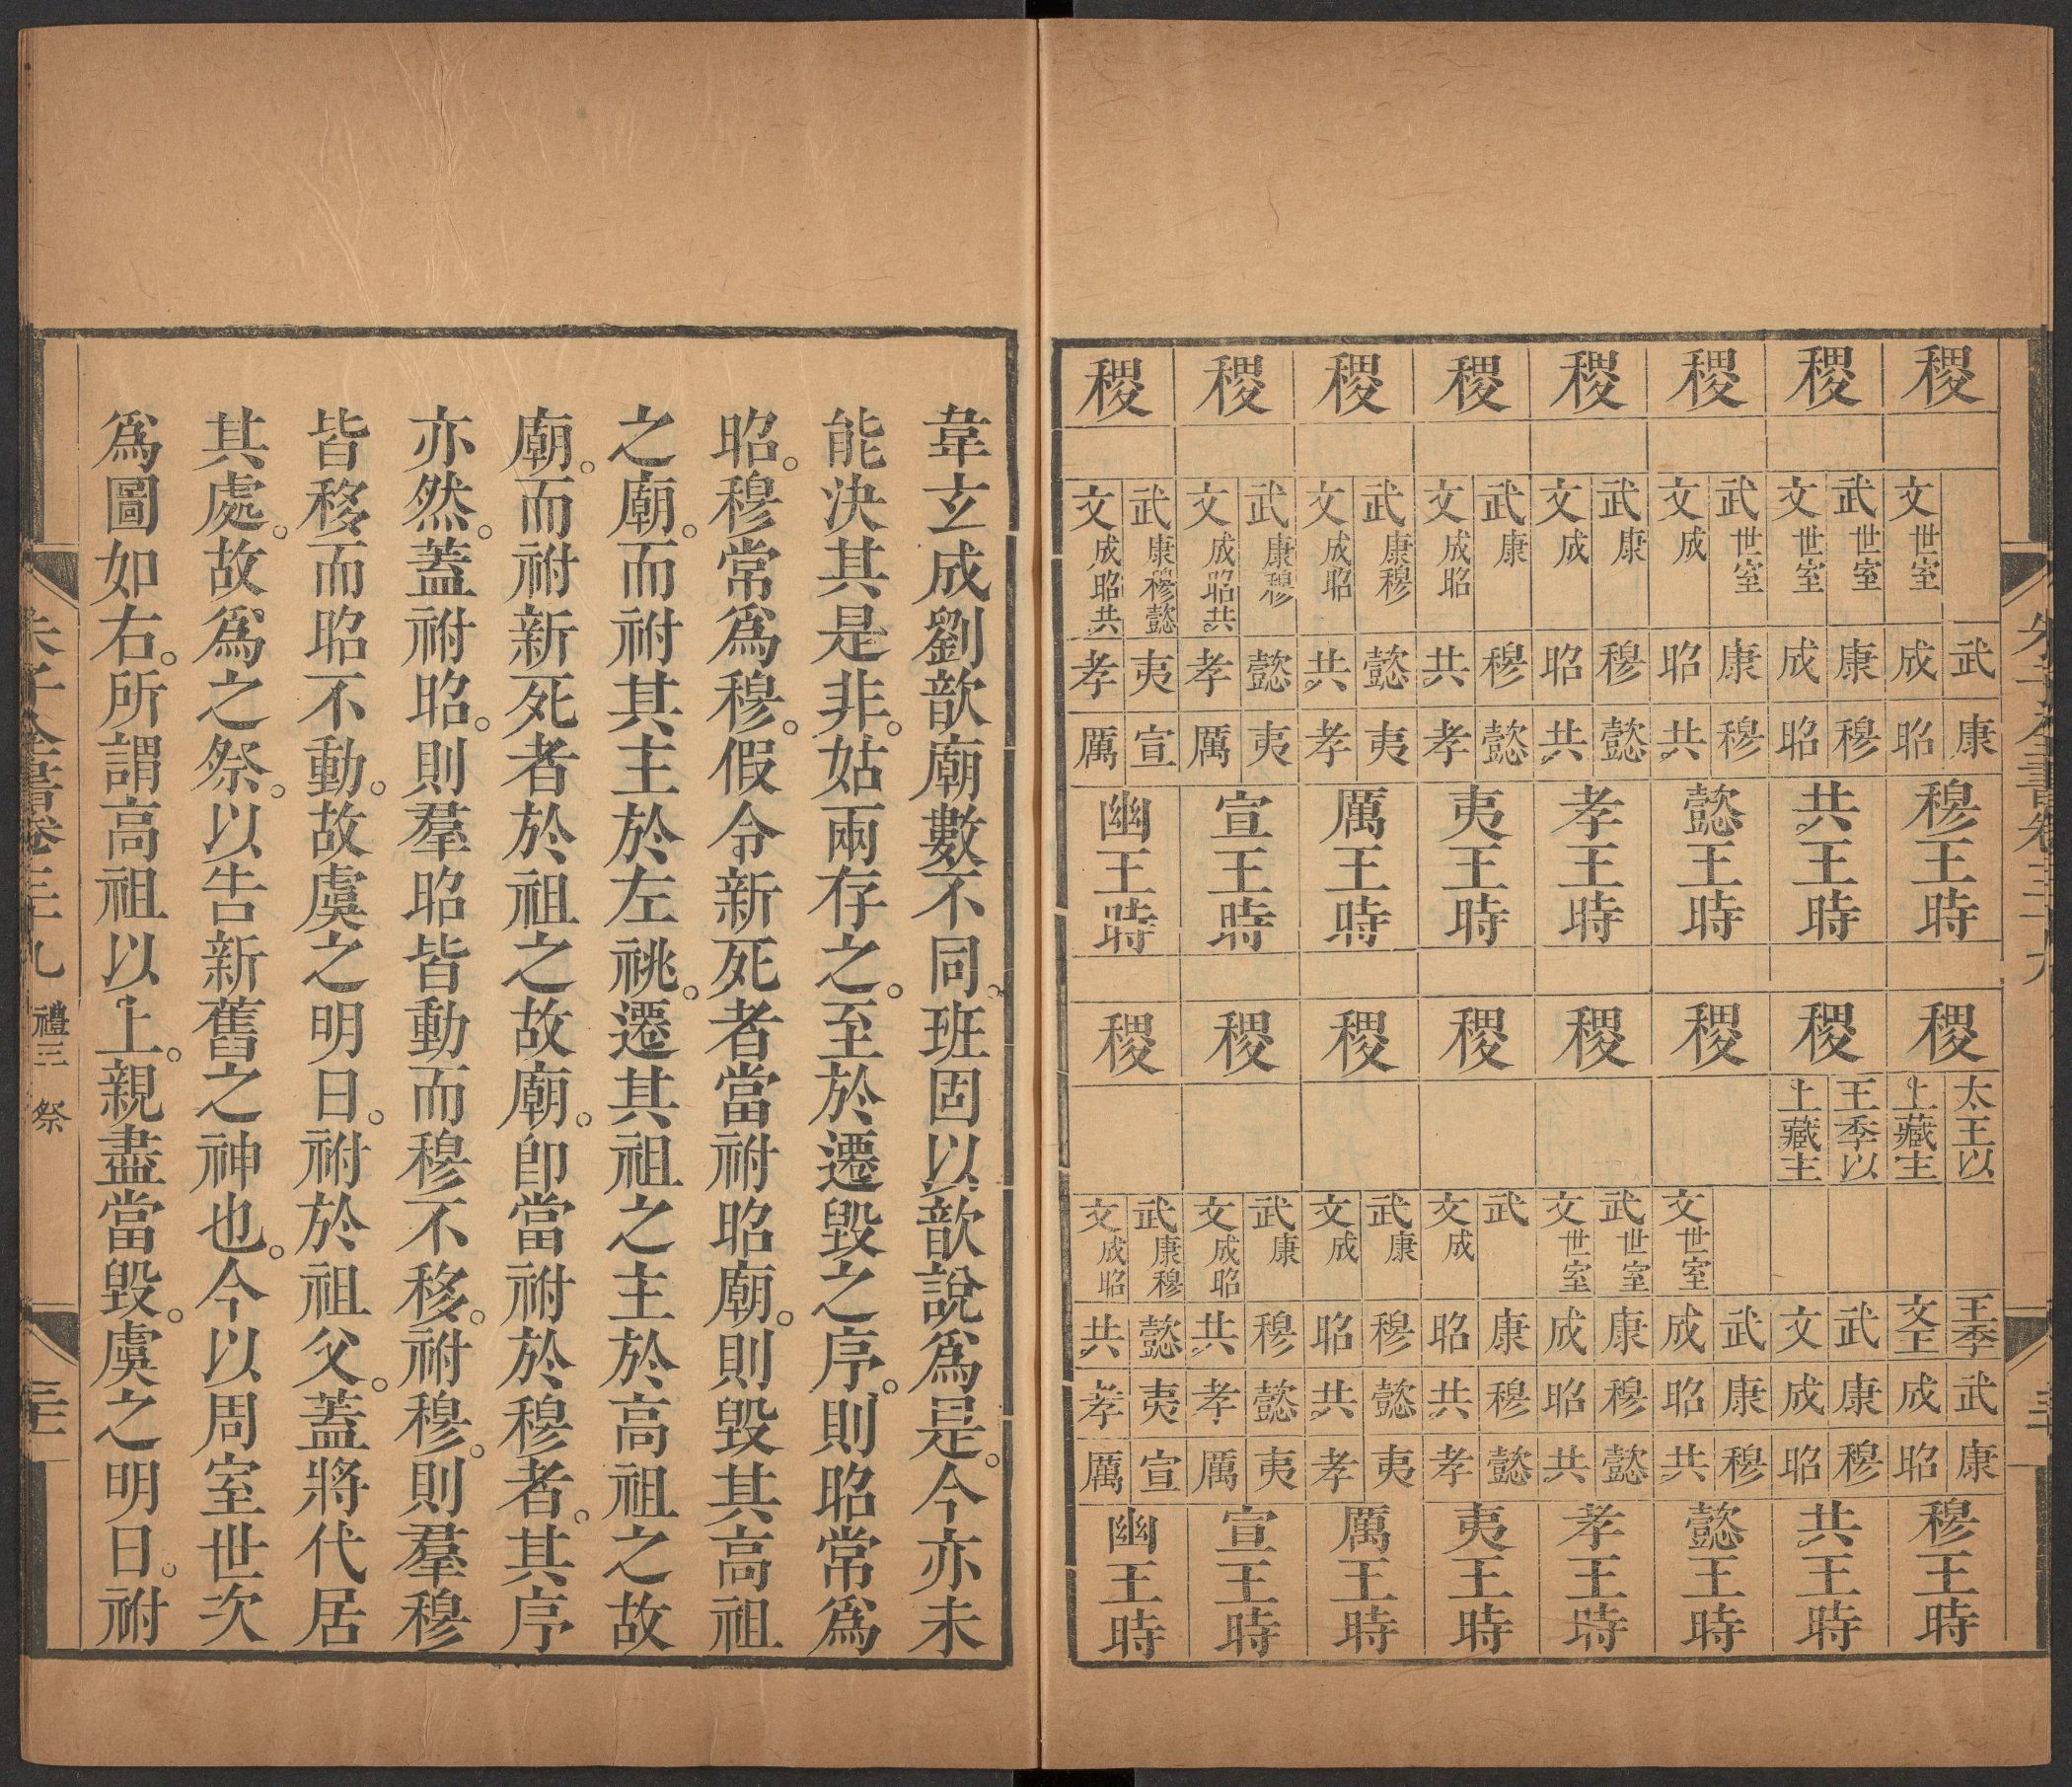 朱子全書卷三十九
稷 稷 稷 稷 稷 稷 稷 稷
文世室 武世室 文世室 武世室 文成 武康 文成 武康 文成昭 武康穆 文成昭 武康穆 文成昭共 武康穆懿 文成昭共
武 成 康 成 康 昭 穆 昭 穆 共 懿 共 懿 孝 夷 孝
康 昭 穆 昭 穆 共 懿 共 懿 孝 夷 孝 夷 厲 宣 厲
穆王時 共王時 懿王時 孝王時 夷王時 厲王時 宣王時 幽王時
稷 稷 稷 稷 稷 稷 稷 稷
太王以上藏主 王季以上藏主
文世室 武世室 文世室 武 文成 武康 文成 武康 文成昭 武康穆 文成昭
王季 文王 武 文 武 成 康 成 康 昭 穆 昭 穆 共 懿 共
武 成 康 成 康 昭 穆 昭 穆 共 懿 共 懿 孝 夷 孝
康 昭 穆 昭 穆 共 懿 共 懿 孝 夷 孝 夷 厲 宣 厲
穆王時 共王時 懿王時 孝王時 夷王時 厲王時 宣王時 幽王時
韋玄成劉歆廟數不同。班固以歆說爲是。今亦未
能決其是非。姑兩存之。至於遷毀之序。則昭常爲
昭。穆常爲穆。假令新死者當祔昭廟。則毀其高祖
之廟。而祔其主於左祧。遷其祖之主於高祖之故
廟。而祔新死者於祖之故廟。卽當祔於穆者。其序
亦然。蓋祔昭。則羣昭皆動而穆不移。祔穆。則羣穆
皆移而昭不動。故虞之明日。祔於祖父。蓋將代居
其處。故爲之祭。以告新舊之神也。今以周室世次
爲圖如右。所謂高祖以上。親盡當毀。虞之明日。祔
朱子全書卷三十九 禮三 祭